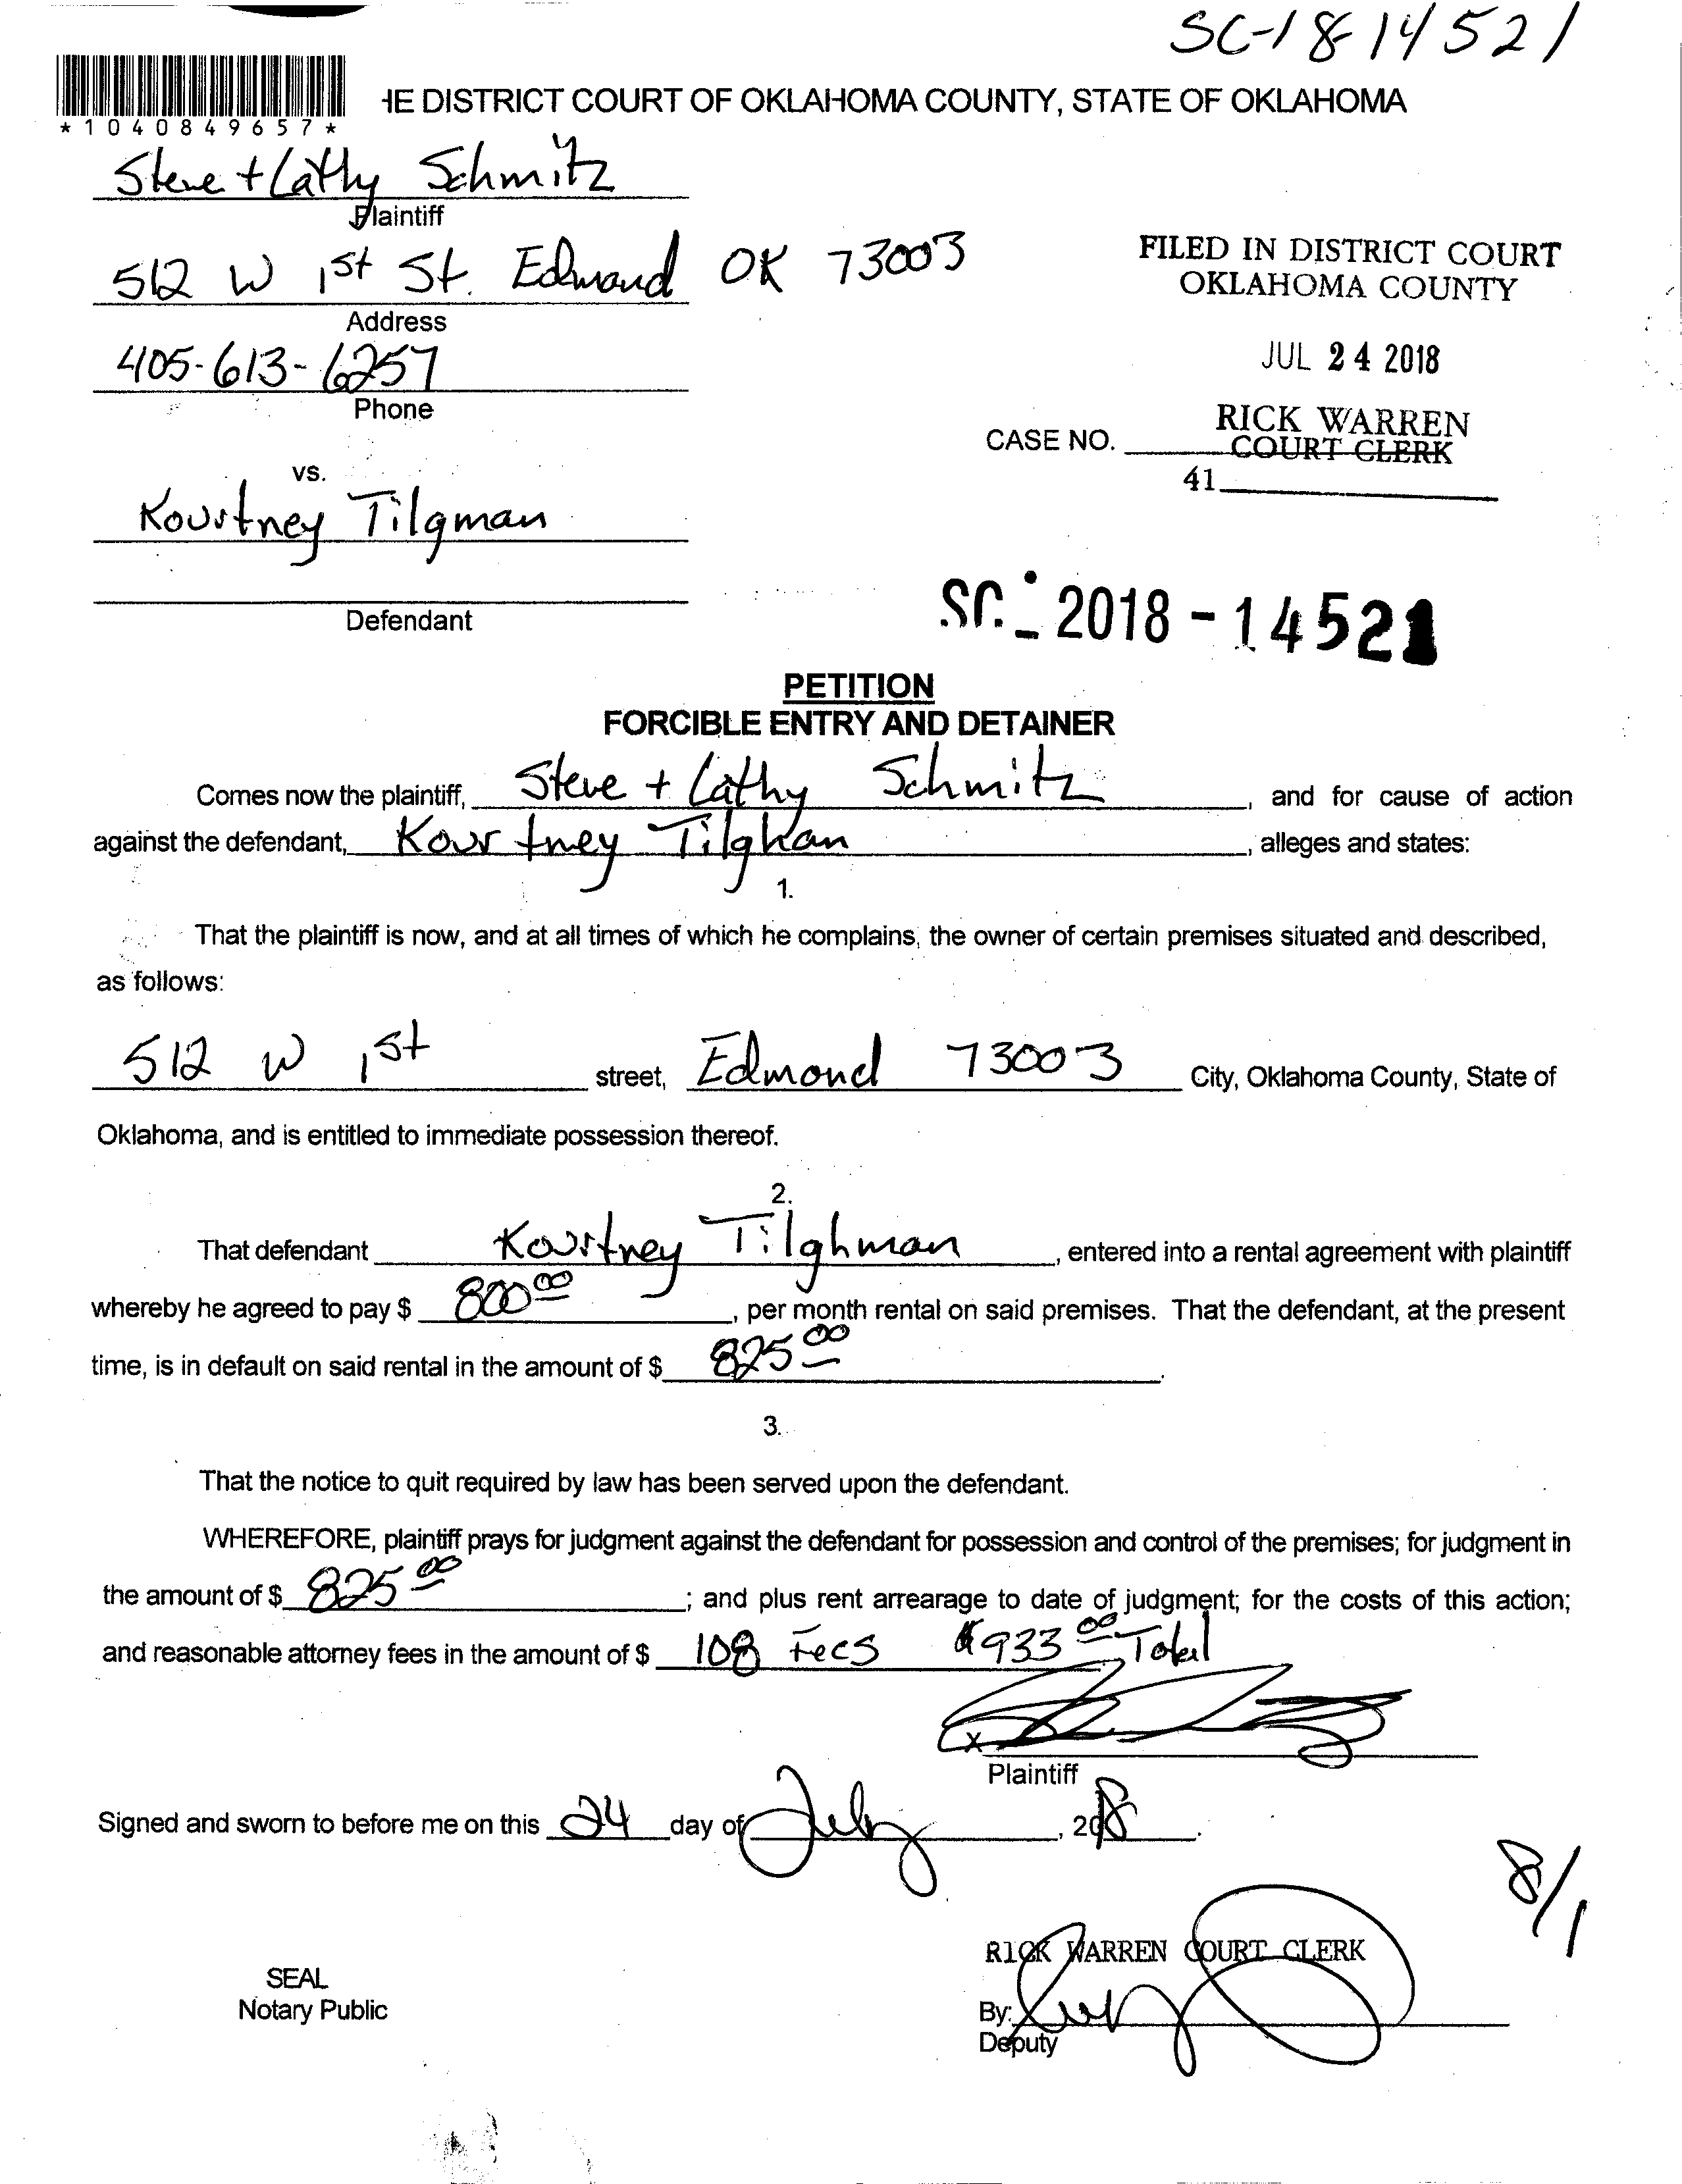 SC-18-14521
*1040849657*
HE DISTRICT COURT OF OKLAHOMA COUNTY, STATE OF OKLAHOMA
Steve + Cathy Schmitz
Plaintiff
512 W 1st St. Edmond OK 73003
Address
405-613-6257
Phone
FILED IN DISTRICT COURT
OKLAHOMA COUNTY
JUL 24 2018
RICK WARREN
COURT CLERK
CASE NO.
41
vs.
Kourtney Tilgman
Defendant
SC - 2018 - 14521
PETITION
FORCIBLE ENTRY AND DETAINER
Comes now the plaintiff, Steve + Cathy Schmitz, and for cause of action
against the defendant, Kourtney Tilghan, alleges and states:
1.
That the plaintiff is now, and at all times of which he complains, the owner of certain premises situated and described,
as follows:
512 W 1st street, Edmond 73003 City, Oklahoma County, State of
Oklahoma, and is entitled to immediate possession thereof.
2.
That defendant Kourtney Tilghman, entered into a rental agreement with plaintiff
whereby he agreed to pay $ 800 00, per month rental on said premises. That the defendant, at the present
time, is in default on said rental in the amount of $ 825 00.
3.
That the notice to quit required by law has been served upon the defendant.
WHEREFORE, plaintiff prays for judgment against the defendant for possession and control of the premises; for judgment in
the amount of $ 825 00; and plus rent arrearage to date of judgment; for the costs of this action;
and reasonable attorney fees in the amount of $ 108 Fees $933 00 Total
X
Plaintiff
Signed and sworn to before me on this 24 day of July, 2018.
8/1
RICK WARREN COURT CLERK
SEAL
Notary Public
By:
Deputy